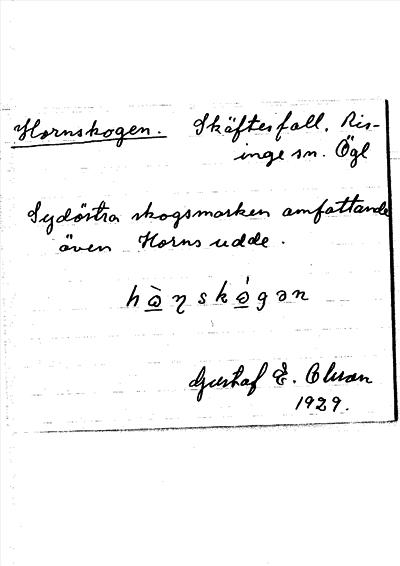 Hornskogen. Skäftesfall, Ris-
inge sn. Ögl
Sydöstra skogsmarken omfattande
även Horns udde.
Gustaf E. Olsson
1929.